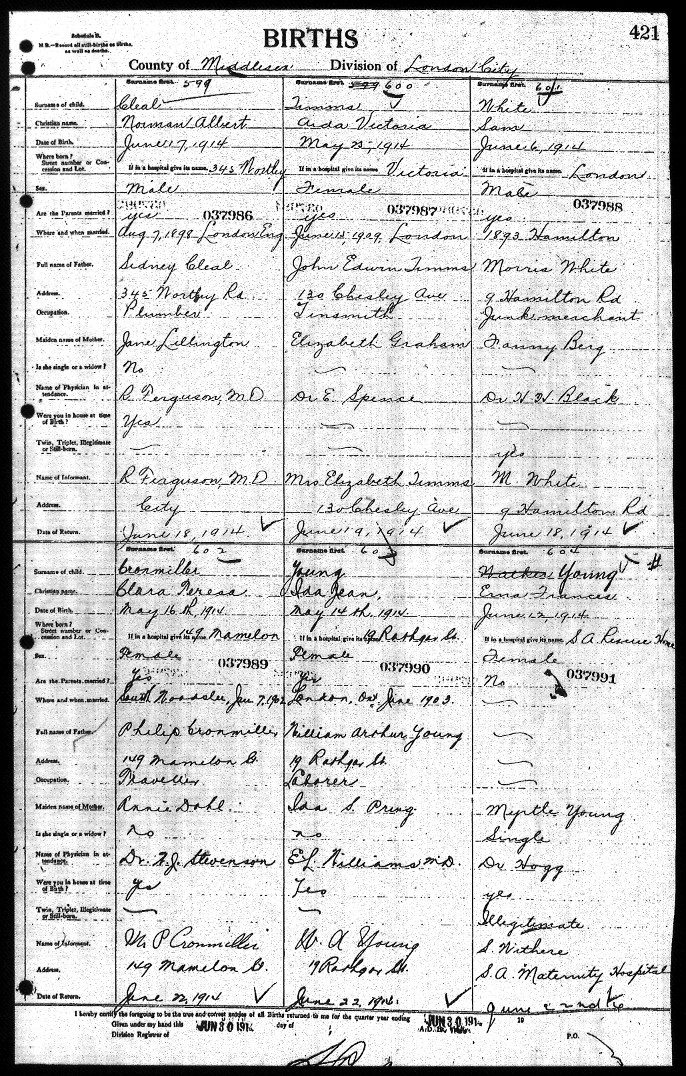 Schedule B.
N B.—Record all still-births as Births, as well as deaths.
BIRTHS
421
County of Middlesex Division of London City
Surname first. 599 Surname first. 599 600 Surname first. 601
Surname of child. Cleal Timms White
Christian name. Norman Albert Aida Victoria Sam
Date of Birth. June 17, 1914 May 23, 1914 June 6, 1914
Where born? Street number or Concession and Lot. If in a hospital give its name. 345 Wortley If in a hospital give its name. Victoria If in a hospital give its name. London
Sex. Male Female Male
037986 037987 037988
Are the Parents married? yes yes yes
Where and when married. Aug. 7, 1898 London Eng June 15, 1909, London 1893 Hamilton
Full name of Father. Sidney Cleal John Edwin Timms Morris White
Address. 345 Wortley Rd 130 Chesley Ave 9 Hamilton Rd
Occupation. Plumber Tinsmith Junk merchant
Maiden name of Mother. Jane Lillington Elizabeth Graham Fanny Berg
Is she single or a widow? No
Name of Physician in attendance. R Ferguson, M D Dr E. Spence Dr H H Black
Were you in house at time of Birth? Yes
Twin, Triplet, Illegitimate or Still-born. yes
Name of Informant. R Ferguson, M.D Mrs Elizabeth Timms M. White
Address. City 130 Chesley Ave 9 Hamilton Rd
Date of Return. June 18, 1914 June 19, 1914 June 18, 1914
Surname first. 602 Surname first. 603 Surname first. 604
Surname of child. Cronmiller Young Young #
Christian name. Clara Teresa Ida Jean Frances
Date of Birth. May 16th, 1914 May 14th, 1914. June 12, 1914
Where born? Street number or Concession and Lot. If in a hospital give its name. 149 Mamelon If in a hospital give its name. 19 Rathgar St. If in a hospital give its name. S.A. Rescue Home
Sex. Female Female Female
037989 037990 037991
Are the Parents married? Yes Yes No
Where and when married. South 7, 1902 London, Ont June 1903.
Full name of Father. Philip Cronmiller William Arthur Young
Address. 149 Mamelon St. 19 Rathgar St.
Occupation. Traveller Laborer
Maiden name of Mother. Annie Dahl. Ida S. Pring Myrtle Young
Is she single or a widow? no no Single
Name of Physician in attendance. Dr. W.J. Stevenson E L Williams M.D. Dr Hogg
Were you in house at time of Birth? Yes Yes yes
Twin, Triplet, Illegitimate or Still-born. Illegitimate
Name of Informant. P Cronmiller W. A Young S. Withere
Address. 149 Mamelon St. 19 Rathgar St. S.A. Maternity Hospital
Date of Return. June 22, 1914 June 22, 1914. June 22nd
I hereby certify the foregoing to be the true and correct entries of all Births returned to me for the quarter year ending JUN 30 1914 19
Given under my hand this JUN 30 1914 day of A.D. 19
Division Registrar of P.O.